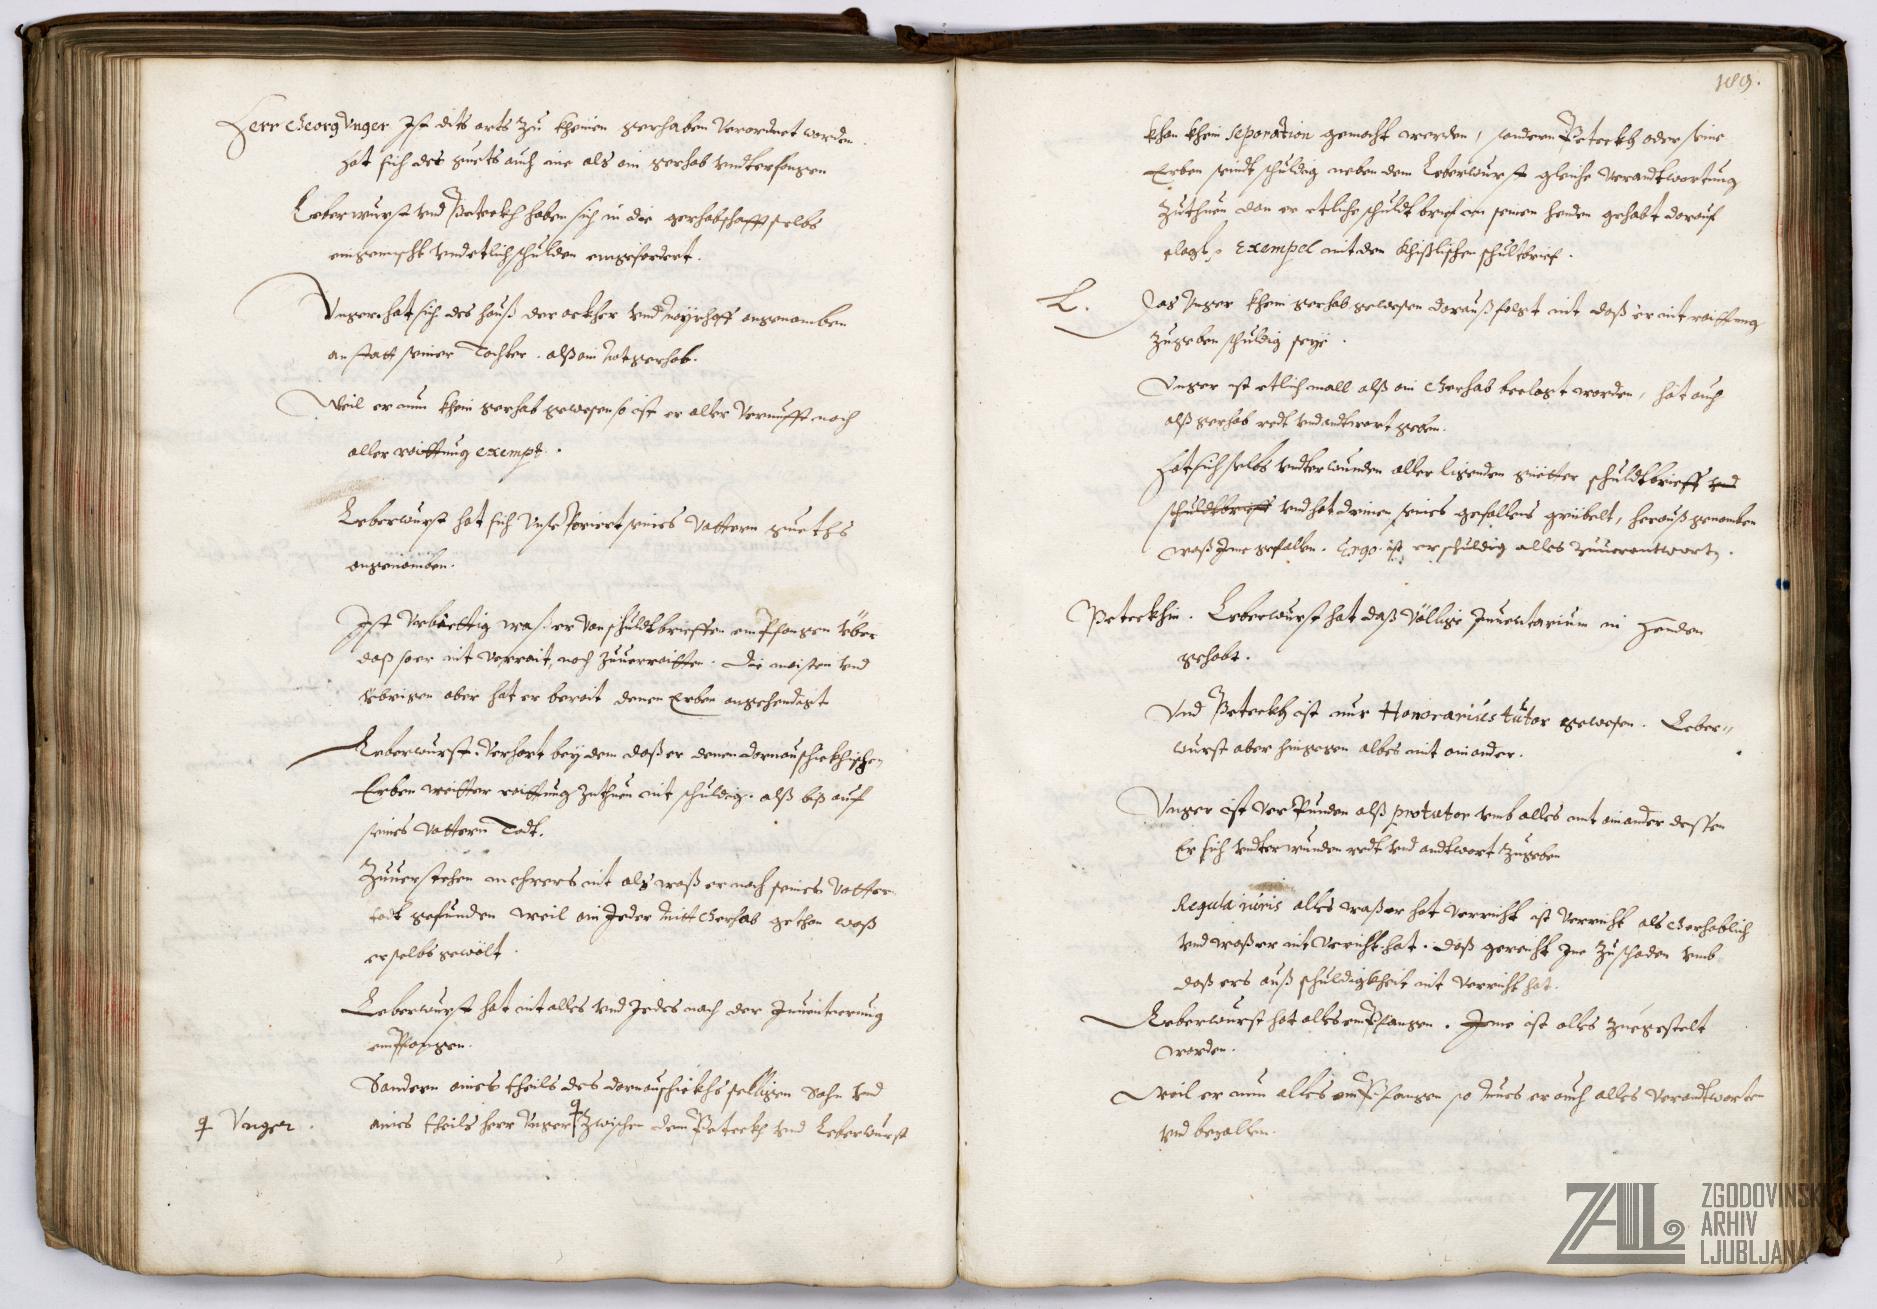 Herr Georg Unger Ist dits orts zu kheinen gerhaben Verordnet worden
hat sich des guets auch nie als ein gerhab vndterfangen
Leberwurst vnd Peterkh haben sich in die gerhabschafft selbs
eingemischt vnd etlich schulden eingefordert.
Unger hat sich des hauß der ackher vnd mayrhoff angenomben
an statt seiner Tochter. alß ein gerhab.
Weil er nun khein gerhab gewesen so ist er aller Vernufft nach
aller raittung exempt.
Leberwurst hat sich seines Vattern gueths
angenomben.
Ist vrbiettig waß er von schuldtbrieffen empfangen vber
daß so er nit verrait, noch zuuerraitten. die maisten vnd
vbrigen aber hat er berait denen Erben angehendigt
Leberwurst. Verhart bey dem daß er denen dornauschekhischen
Erben weitter raittung zuthuen nit schuldig. alß biß auf
seines Vattern Todt.
Zuuerstehen mehrers nit als waß er nach seines Vatter
todt gefunden weil ein Jeder mitt Gerhab gethan waß
er selbs gewölt.
Leberwurst hat nit alles vnd Jedes nach der Inuentierung
empfangen.
Sondern aines theils des dornauschekhs selligen Sohn vnd
ꝗ Unger.
aines theils herr Unger ꝗ zwischen dem Peterkh vnd Leberwurst
189.
khan khein separation gemacht werden, sondern Peterkh oder seine
Erben seindt schuldig neben dem Leberwurst gleiche verandtwortung
zuthuen dan er etliche schuldtbrief in seinen henden gehabt darauf
clagt, Exempel mit den Khißlischen schultbrief.
L.
Das Unger khein gerhab gewesen darauß folgt nit daß er nit raittung
zugeben schuldig seye.
Unger ist etlich mall alß ein Gerhab beclagt worden, hat auch
alß gerhab redt vnd andtwort geben.
Hat sich selbs vndterwunden aller ligenden güetter schuldtbrieff vnd
schuldtbrieff vnd hat drinen seines gefallens grübelt, herauß genomben
waß Ime gefallen. Ergo. ist er schuldig alles zuuerantwortn.
Peterkhin. Leberwurst hat daß völlige Inuentarium in henden
gehabt.
Vnd Peterkh ist nur Honorarius tutor gewesen. Leber-
wurst aber hingegen alles mit ainander.
Unger ist verpunden alß protutor vmb alles mit ainander dessen
Er sich vndterwunden redt vnd andtwort zugeben
Regula iuris alles waß er hat verricht ist verricht als Gerhablich
vnd waß er nit verricht hat. daß gereicht Ime zu schaden vmb
daß ers auß schuldigkheit nit verricht hat.
Leberwurst hat alles empfangen. Jme ist alles zuegestelt
worden.
Weil er nun alles empfangen so mues er auch alles verandtworten
vnd bezallen.
ZAL
ZGODOVINSKI
ARHIV
LJUBLJANA